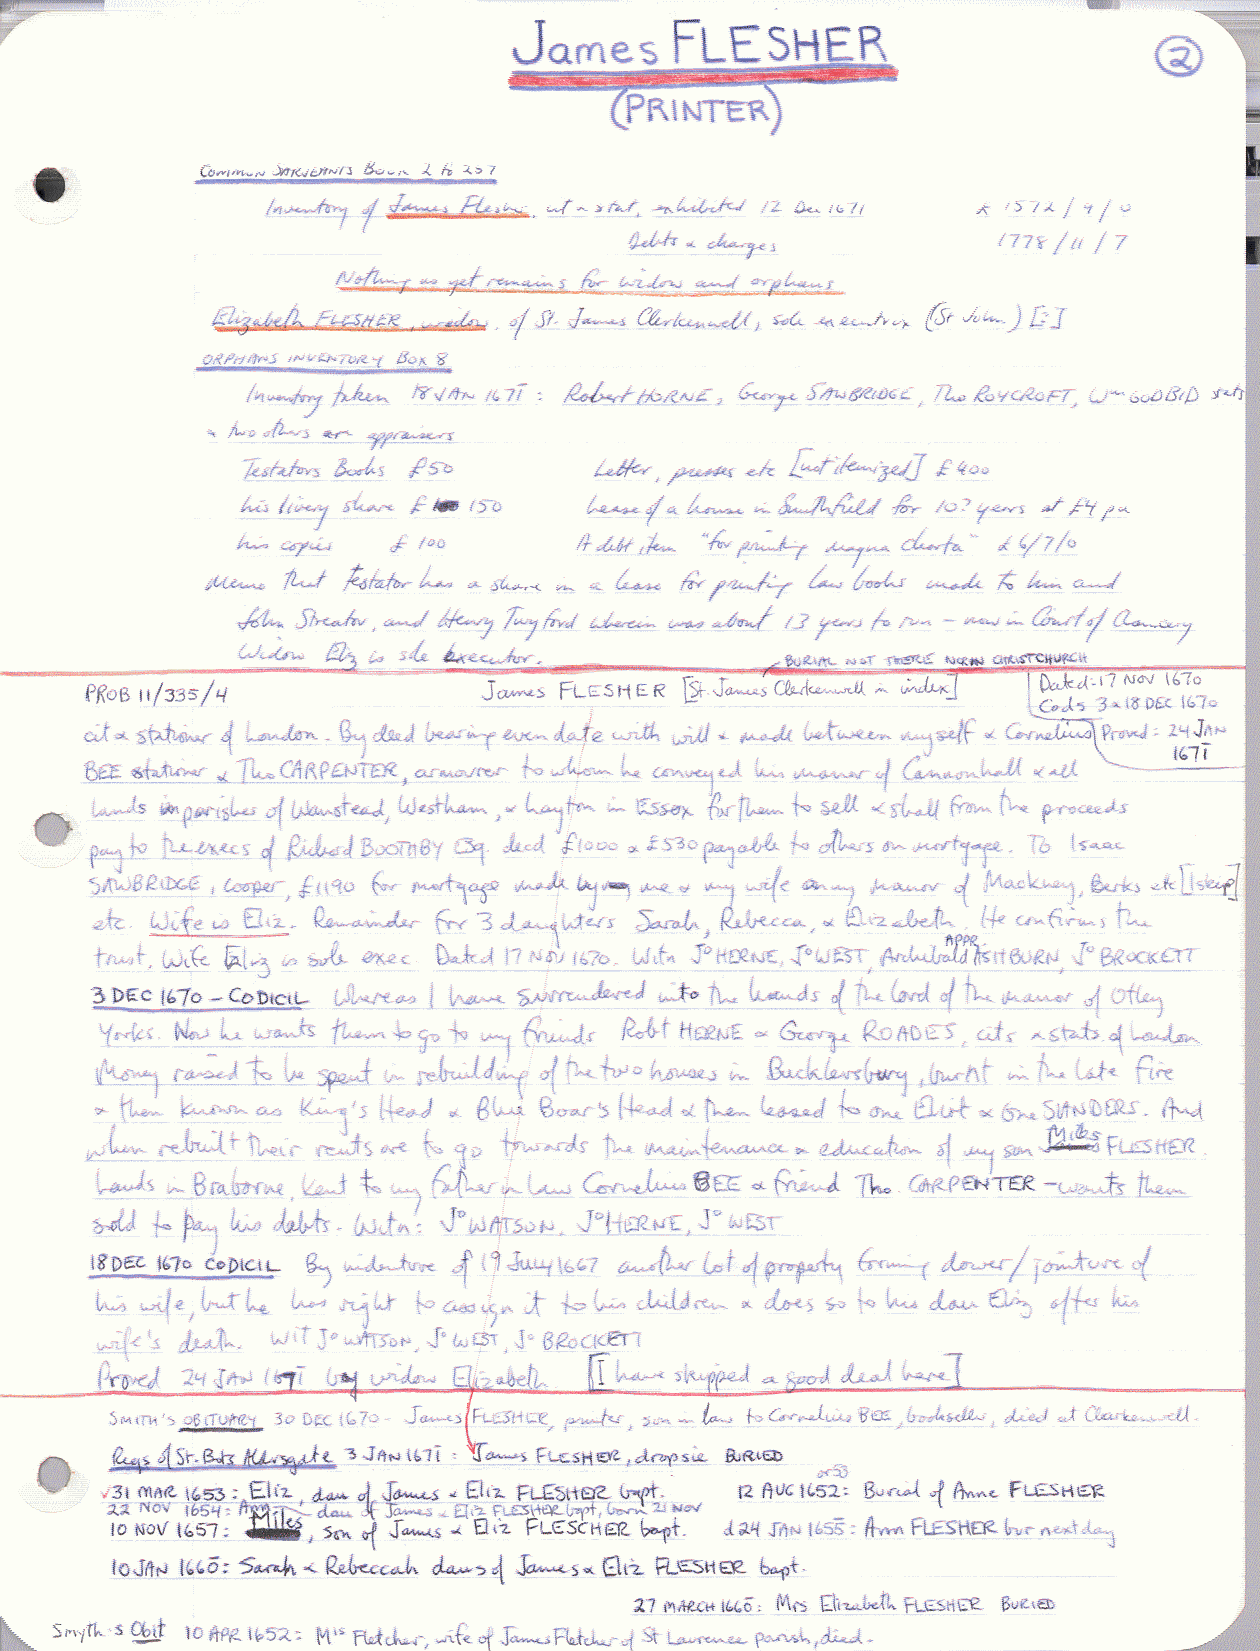 James FLESHER
②
(PRINTER)
COMMON SARJEANTS BOOK 2 fo 257
Inventory of James Flesher, cit & stat, exhibited 12 Dec 1671 £ 1572/9/0
Debts & charges 1778/11/7
Nothing as yet remains for widow and orphans
Elizabeth FLESHER, widow, of St. James Clerkenwell, sole executrix (St John)
ORPHANS INVENTORY BOX 8
Inventory taken 18 JAN 1671̄ : Robert HORNE, George SAWBRIDGE, Tho ROYCROFT, Wm GODBID stats
& two others are appraisers
Testators Books £50 Letter, presses etc [not itemized] £400
his livery share £ 150 Lease of a house in Smithfield for 10? years at £4 pa
his copies £ 100 A debt item "for printing magna charta" £6/7/0
Memo that testator has a share in a lease for printing law books made to him and
John Streator, and Henry Twyford wherein was about 13 years to run – now in Court of Chancery
Widow Eliz is sole executor.
BURIAL NOT THERE NOR IN CHRISTCHURCH
PROB 11/335/4 James FLESHER [St. James Clerkenwell in index] Dated: 17 NOV 1670
Cods 3 & 18 DEC 1670
cit & stationer of London. By deed bearing even date with will & made between myself & Cornelius Proved: 24 JAN
1671̄
BEE stationer & Tho CARPENTER, armourer to whom he conveyed his manor of Cannonhall & all
lands in parishes of Wanstead, Westham, & Layton in Essex for them to sell & shall from the proceeds
pay to the execs of Richard BOOTHBY Esq. decd £1000 & £530 payable to others on mortgage. To Isaac
SAWBRIDGE, cooper, £1190 for mortgage made by me & my wife on my manor of Mackney, Berks etc [I skip]
etc. Wife is Eliz. Remainder for 3 daughters Sarah, Rebecca, & Elizabeth. He confirms the
trust. Wife Eliz is sole exec. Dated 17 NOV 1670. Witn Jo HERNE, Jo WEST, Archibald ASHBURN, Jo BROCKETT
APPR
3 DEC 1670 – CODICIL Whereas I have surrendered into the hands of the lord of the manor of Otley
Yorks. Now he wants them to go to my friends Robt HERNE & George ROADES, cits & stats. of London
Money raised to be spent in rebuilding of the two houses in Bucklersbury, burnt in the late fire
& then known as King's Head & Blue Boar's Head & then leased to one Eliot & one SUNDERS. And
when rebuilt their rents are to go towards the maintenance & education of my son Miles FLESHER.
Lands in Braborne, Kent to my father in law Cornelius BEE & friend Tho. CARPENTER – wants them
sold to pay his debts. Witn: Jo WATSON, Jo HERNE, Jo WEST
18 DEC 1670 CODICIL By indenture of 19 July 1667 another lot of property forming dower/jointure of
his wife, but he has right to assign it to his children & does so to his dau Eliz after his
wife's death. WIT Jo WATSON, Jo WEST, Jo BROCKETT
Proved 24 JAN 1671̄ by widow Elizabeth [I have skipped a good deal here]
SMITH'S OBITUARY 30 DEC 1670 – James FLESHER, printer, son in law to Cornelius BEE, bookseller, died at Clarkenwell.
Regs of St. Bots Aldersgate 3 JAN 1671̄ : James FLESHER, dropsie BURIED
31 MAR 1653: Eliz, dau of James & Eliz FLESHER bapt. 12 AUG 1652: Burial of Anne FLESHER
or 53
22 NOV 1654: Ann – dau of James & Eliz FLESHER bapt, born 21 NOV
10 NOV 1657: Miles, son of James & Eliz FLESCHER bapt. d 24 JAN 1655̄: Ann FLESHER bur next day
10 JAN 1660̄: Sarah & Rebeccah daus of James & Eliz FLESHER bapt.
27 MARCH 1660̄: Mrs Elizabeth FLESHER BURIED
Smyth's Obit 10 APR 1652: Mis Fletcher, wife of James Fletcher of St Laurence parish, died.